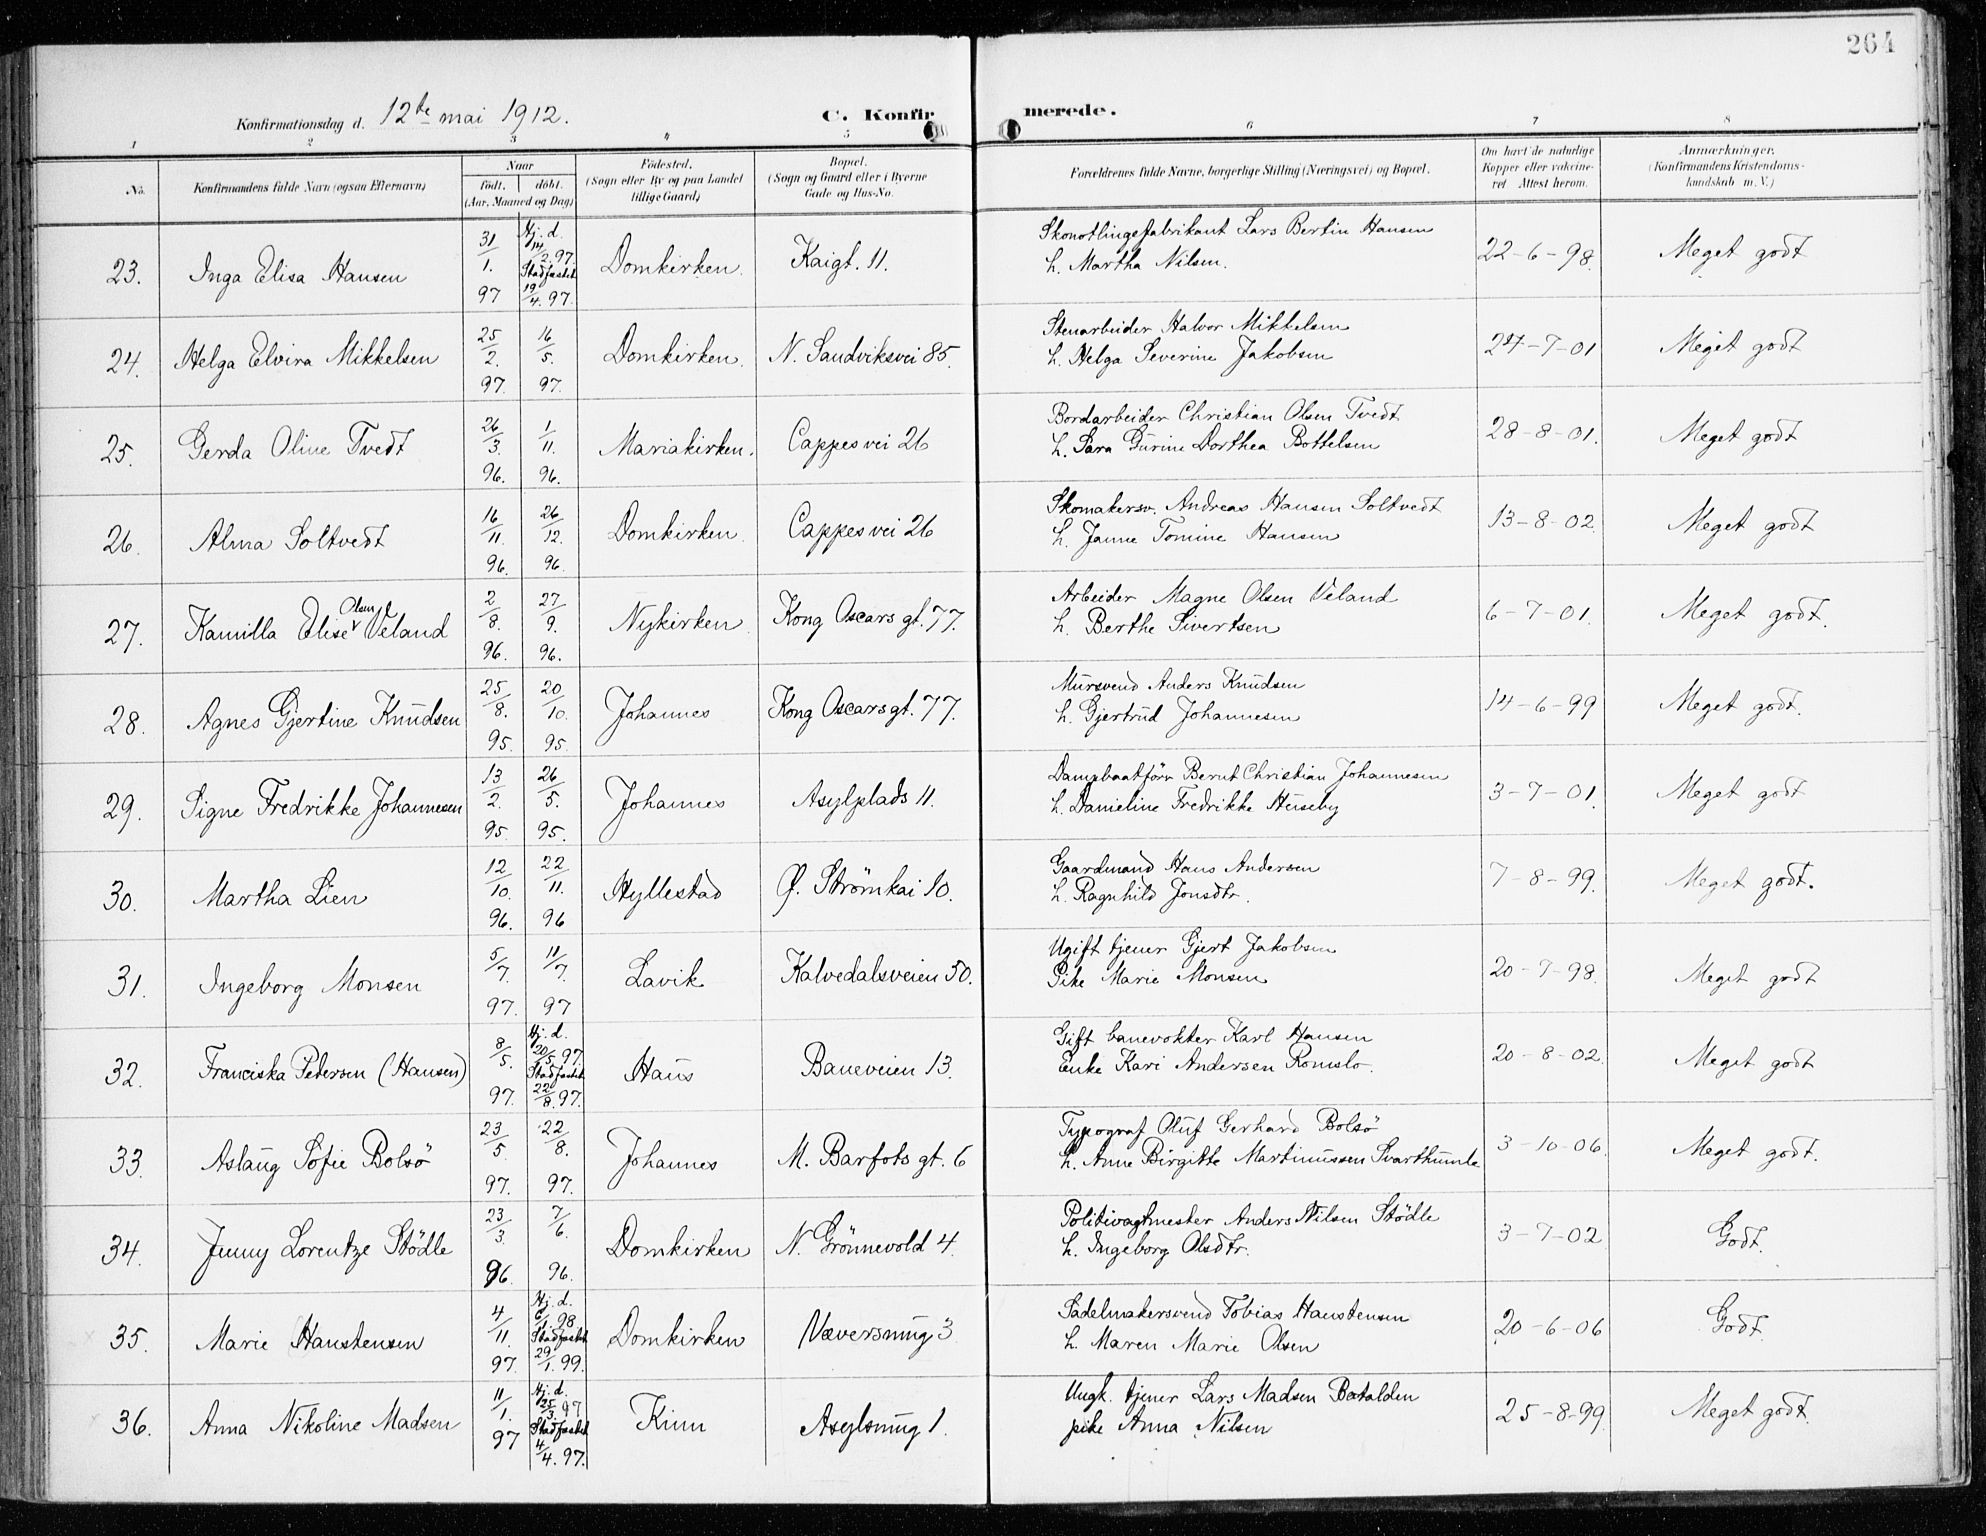 264
Konfirmationsdag d. 12te mai 1912. C. Konfirmerede.
1 2 3 " 5 6 7 8
No. Konfirmandens fulde Navn (ogsaa Efternavn) Naar født. døbt. (Aar, Maaned og Dag) Fødested. (Sogn eller By og paa Landet tillige Gaard) Bopæl. (Sogn og Gaard eller i Byerne Gade og Hus-No. Forældrenes fulde Navne, borgerlige Stilling (Næringsvei) og Bopæl. Om havt de naturlige Kopper eller vakcineret. Attest herom. Anmærkninger. (Konfirmandens Kristendomskundskab m. V.)
23. Inga Elisa Hansen 31/1. 97 Hj. d. 14/2. 97. Stadfæstet 19/4. 97. Domkirken. Kaigt. 11. Skonotlingefabrikant Lars Bertin Hansen
h. Martha Nilsen. 22-6-98. Meget godt
24. Helga Elvira Mikkelsen 25/2. 97. 16/5. 97. Domkirken. N. Sandviksvei 85. Stenarbeider Halvor Mikkelsen
h. Helga Severine Jakobsen 24-7-01 Meget godt
25. Gerda Oline Tvedt 26/3. 96. 1/11. 96. Mariakirken. Cappes vei 26 Bordarbeider Christian Olsen Tvedt
h. Sara Gurine Dorthea Bottelsen 28-8-01. Meget godt
26. Alma Soltvedt 16/11. 96. 26/12. 96. Domkirken. Cappes vei 26 Skomakersv. Andreas Hansen Soltvedt
h. Janne Tomine Hansen 13-8-02. Meget godt
27. Kamilla Elise Olsen Veland 2/8. 96. 27/9. 96. Nykirken. Kong Oscars gt. 77. Arbeider Magne Olsen Veland
h. Berthe Sivertsen 6-7-01. Meget godt.
28. Agnes Gjertine Knudsen 25/8. 95. 20/10. 95. Johannes Kong Oscarsgt. 77. Mursvend Anders Knudsen
h. Gjertrud Johannesen 14-6-99 Meget godt.
29. Signe Fredrikke Johannesen 13/2. 95. 26/5. 95. Johannes Asylplads 11. Dampbaatförer Bernt Christian Johannesen
h. Danieline Fredrikke Huseby 3-7-01. Meget godt
30. Martha Lien 12/10. 96. 22/11. 96 Hyllestad Ø. Strömkai 10. Gaardmand Hans Andersen
h. Ragnhild Jonsdtr. 7-8-99. Meget godt.
31. Ingeborg Monsen 5/7. 97. 11/7. 97 Lavik Kalvedalsveien 50. Ugift tjener Gjert Jakobsen
Pike Marie Monsen 20-7-98. Meget godt
32. Franciska Pedersen (Hansen) 8/5. 97. Hj. d. 20/5. 97. Stadfæstet 22/8. 97. Haus Baneveien 13. Gift banevokter Karl Hansen
Enke Kari Andersen Romslo. 20-8-02. Meget godt
33. Aslaug Sofie Bolsö 23/5. 97. 22/8. 97. Johannes M. Barfots gt. 6 Typograf Oluf Gerhard Bolsö
h. Anne Birgitte Martinussen Svarthumle 3-10-06. Meget godt.
34. Jenny Lorentze Stödle 23/3 96. 7/6. 96. Domkirken N. Grönnevold 4. Politivagtmester Anders Nilsen Stödle
h. Ingeborg Olsdtr. 3-7-02 Godt.
35. Marie Hanstensen 4/11. 97. Hj. d. 6/1. 98 Stadfæstet 29/1. 99. Domkirken Væversmug 3 Sadelmakersvend Tobias Hanstensen
h. Maren Marie Olsen 20-6-06 Godt.
36. Anna Nikoline Madsen 11/1. 97 Hj. d. 25/3. 97 Stadfæstet 4/4. 97. Kinn Asylsmug 1. Ungk. tjener Lars Madsen Batalden
pike Anna Nilsen 25-8-99. Meget godt.